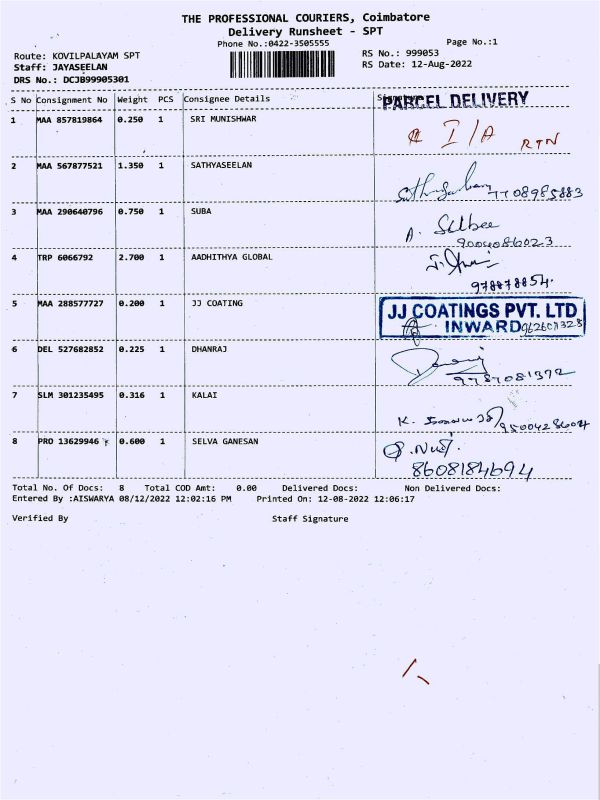 THE PROFESSIONAL COURIERS, Coimbatore
Delivery Runsheet - SPT
Phone No.:0422-3505555 Page No.:1
Route: KOVILPALAYAM SPT RS No.: 999053
Staff: JAYASEELAN RS Date: 12-Aug-2022
DRS No.: DCJB99905301
S No Consignment No Weight PCS Consignee Details Signature
PARCEL DELIVERY
1 MAA 857819864 0.250 1 SRI MUNISHWAR I/A RTN
2 MAA 567877521 1.350 1 SATHYASEELAN
7708985883
3 MAA 290640796 0.750 1 SUBA A.
9004086023
4 TRP 6066792 2.700 1 AADHITHYA GLOBAL
5 MAA 288577727 0.200 1 JJ COATING JJ COATINGS PVT. LTD
INWARD
6 DEL 527682852 0.225 1 DHANRAJ
9787081392
7 SLM 301235495 0.316 1 KALAI K.
8 PRO 13629946 0.600 1 SELVA GANESAN
8608184694
Total No. Of Docs: 8 Total COD Amt: 0.00 Delivered Docs: Non Delivered Docs:
Entered By :AISWARYA 08/12/2022 12:02:16 PM Printed On: 12-08-2022 12:06:17
Verified By Staff Signature